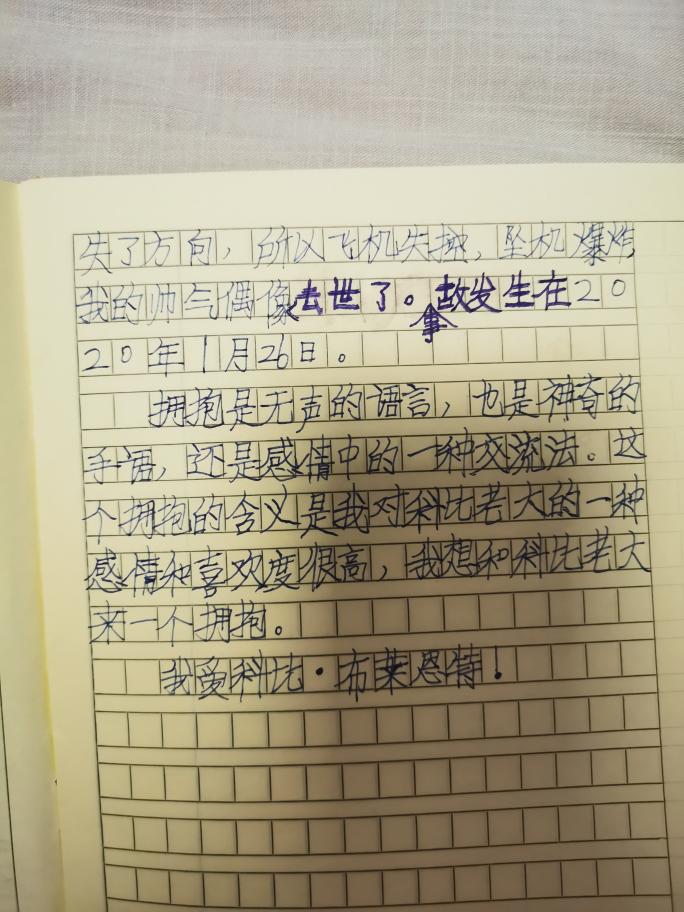 失了方向，所以飞机失控，坠机爆炸，
我的帅气偶像去世了。事故发生在20
20年1月26日。
拥抱是无声的语言，也是神奇的
手语，还是感情中的一种交流法。这
个拥抱的含义是我对科比老大的一种
感情和喜欢度很高，我想和科比老大
来一个拥抱。
我爱科比·布莱恩特！